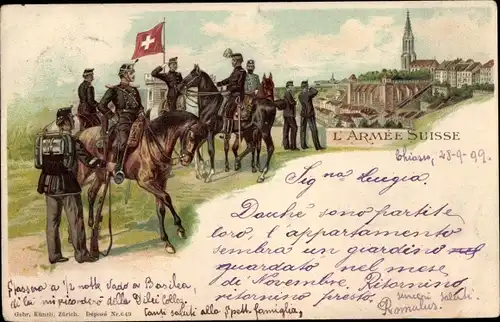 L'ARMÉE SUISSE
Chiasso, 28-9-99.
Sig.na Luigia.
Dacchè sono partite
loro, l'appartamento
sembra un giardino
guardato nel mese
di Novembre. Ritornino,
ritornino presto.
saluti
Romulus.
Stassera a ½ notte vado a Basilea,
di là mi ricorderò della
tanti saluti alla Spett. famiglia,
Gebr. Künzli, Zürich. Déposé Nr. 649